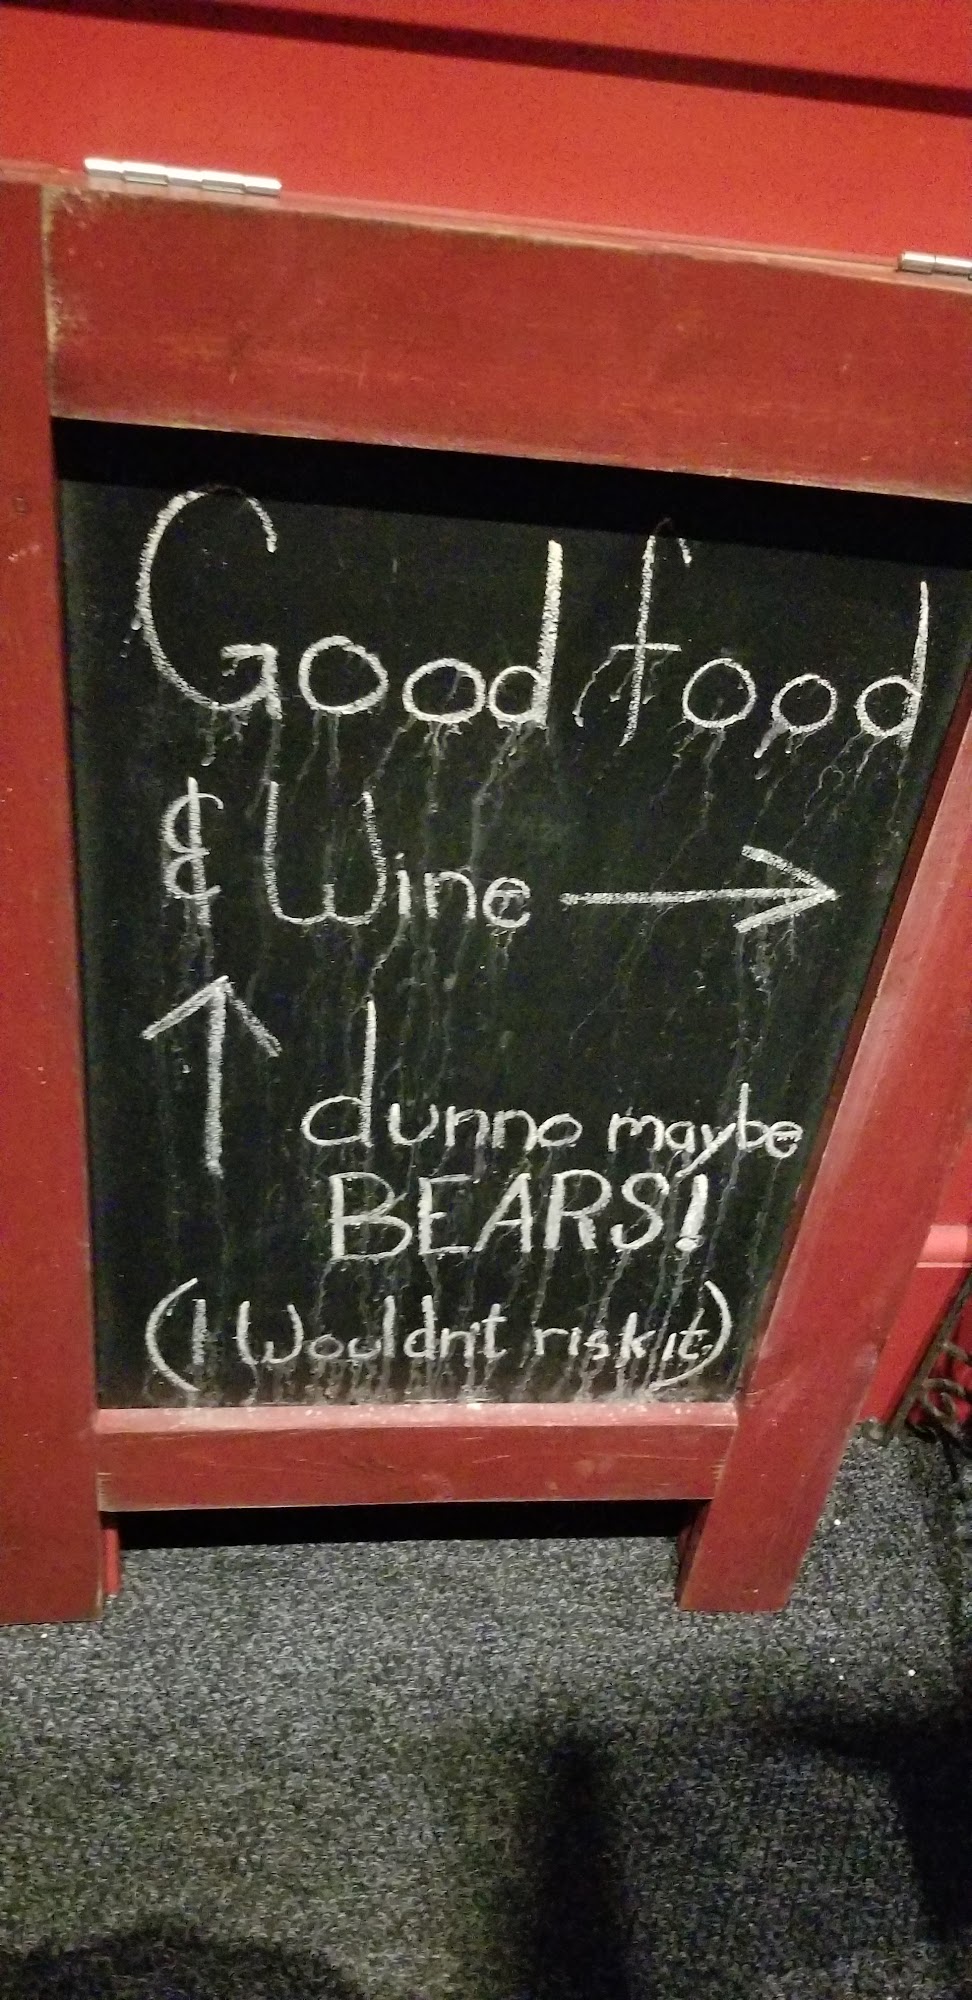 Good food
& Wine →
↑ dunno maybe
BEARS!
(I Wouldn't risk it.)